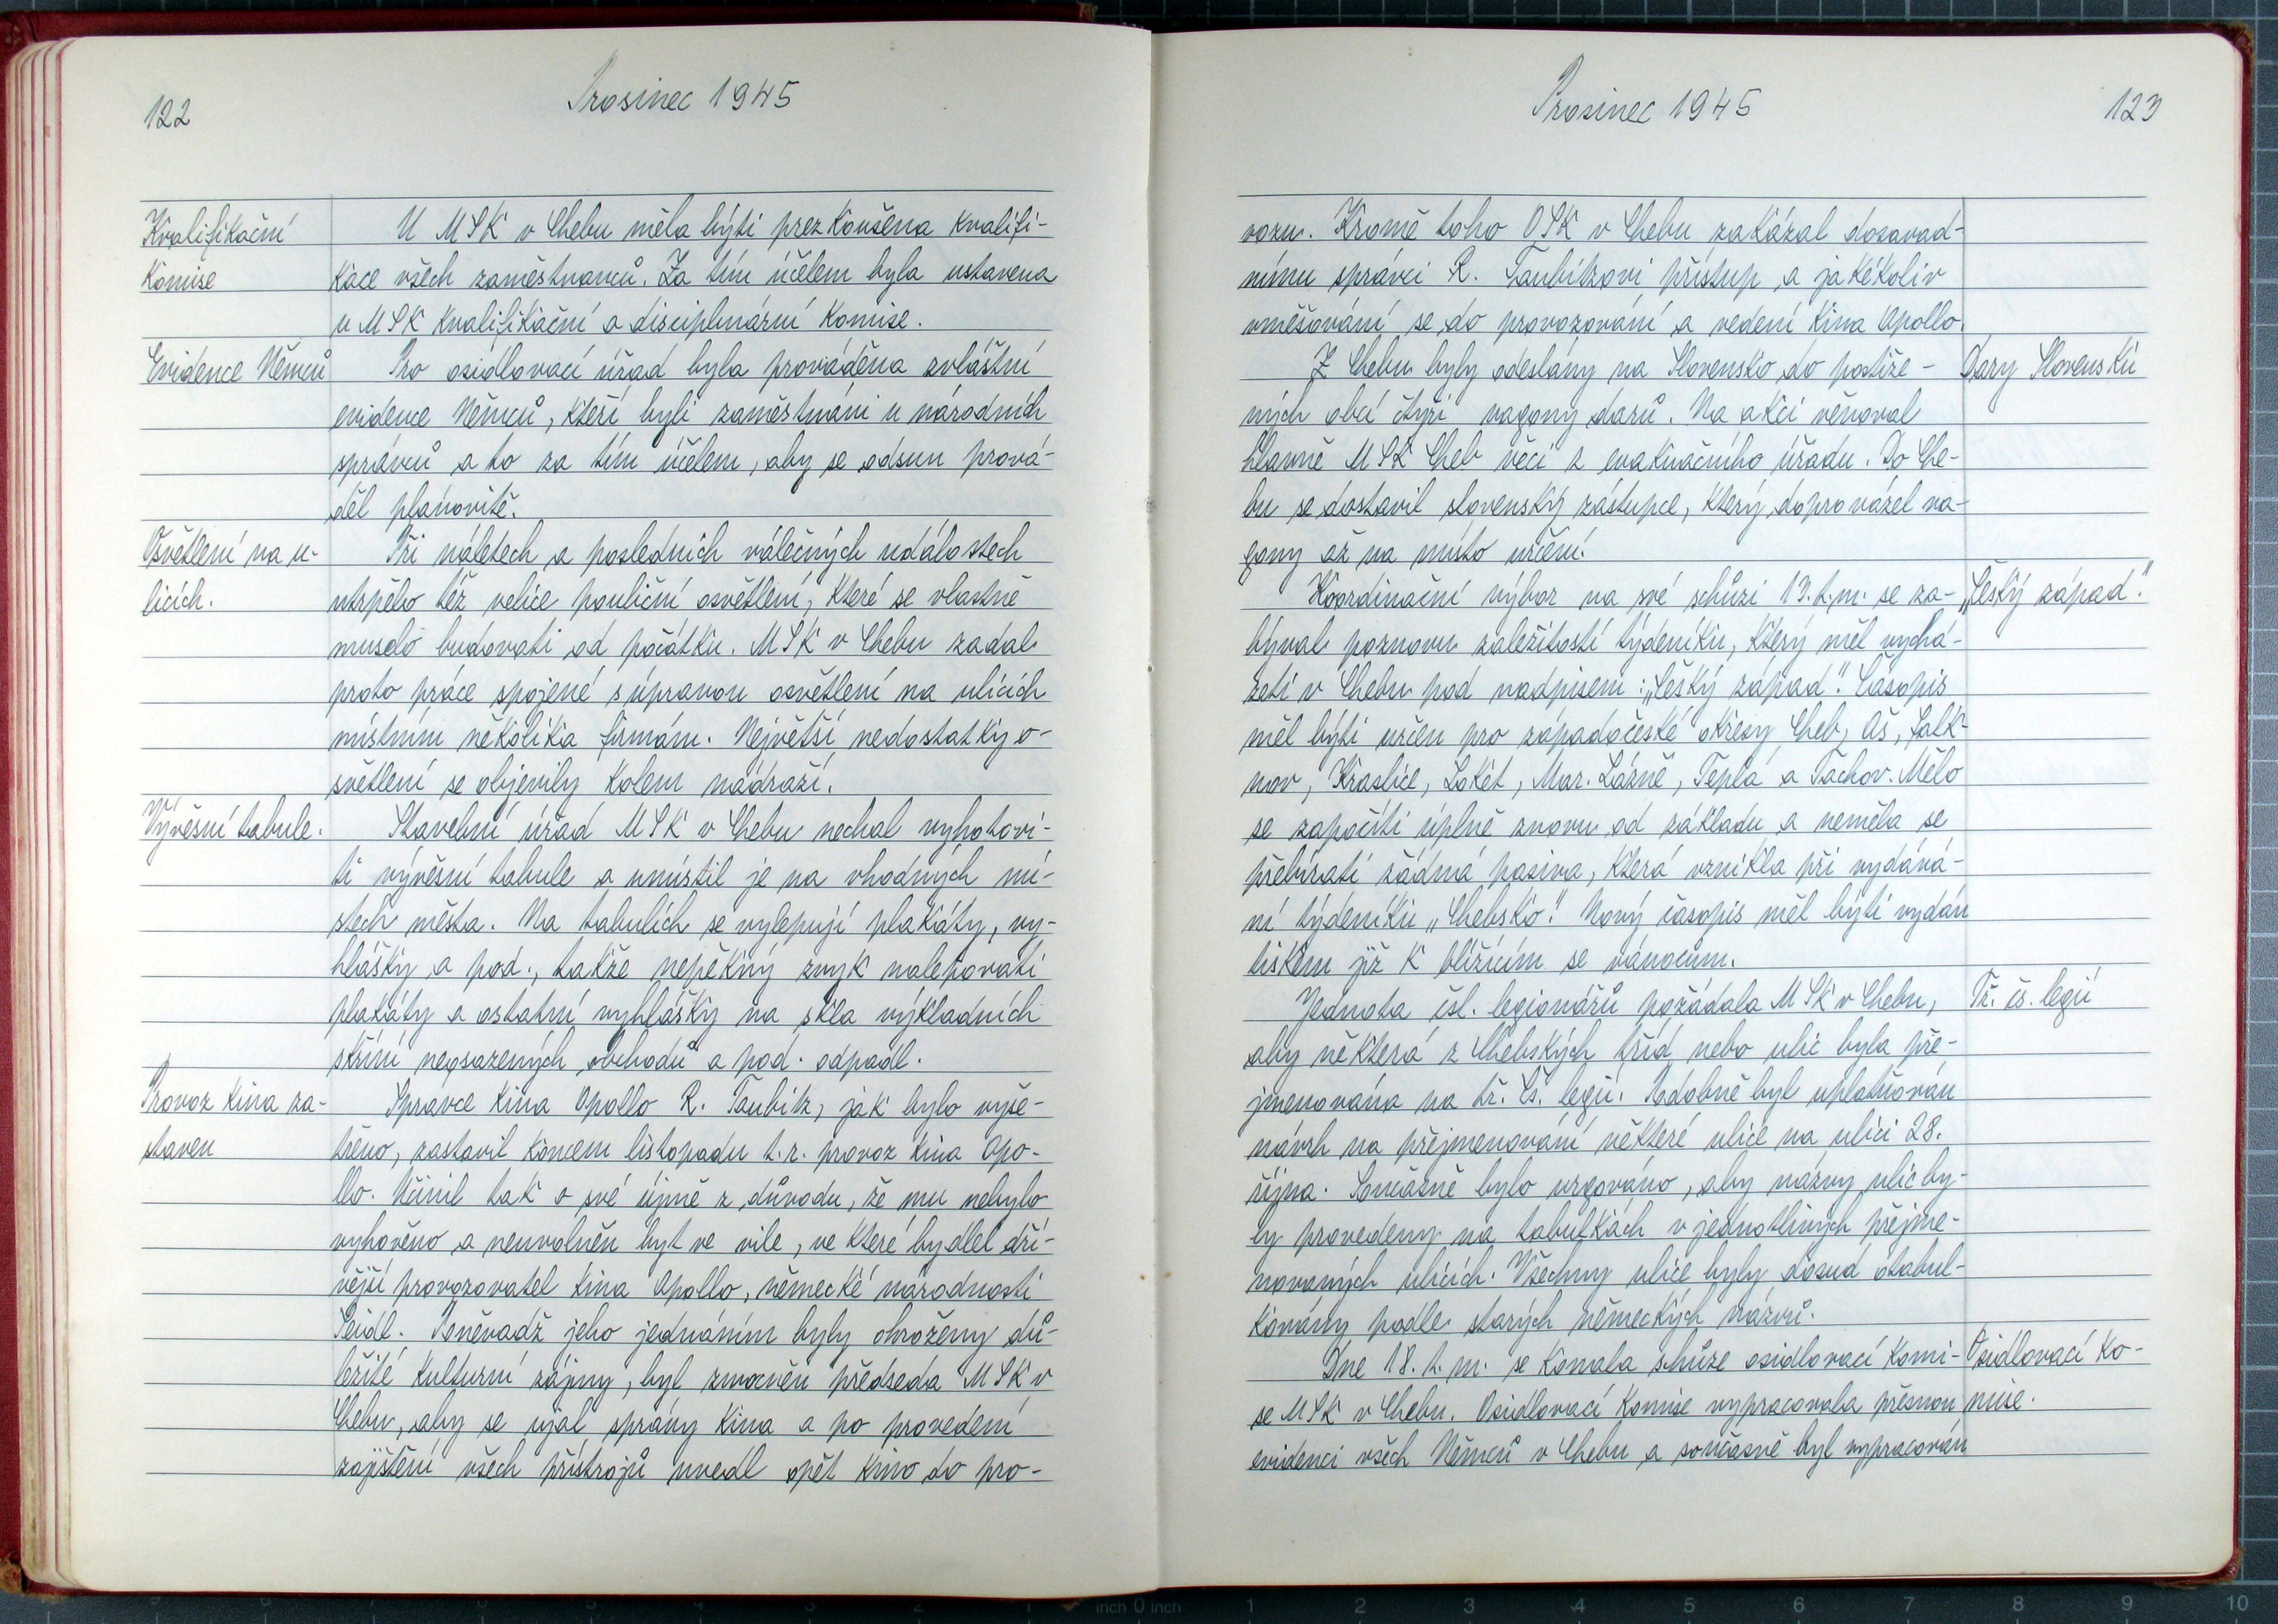 122
Prosinec 1945
Kvalifikační
komise
U MSK v Chebu měla býti prezkoušena kvalifi-
kace všech zaměstnanců. Za tím účelem byla ustavena
u MSK kvalifikační a disciplinární komise.
Evidence Němců
Pro osidlovací úřad byla prováděna zvláštní
evidence Němců, kteří byli zaměstnáni u národních
správců a to za tím účelem, aby se odsun prová-
děl plánovitě.
Osvětlení na u-
licích.
Při náletech a posledních válečných událostech
utrpělo též velice pouliční osvětlení, které se vlastně
muselo budovati od počátku. MSK v Chebu zadal
proto práce spojené s úpravou osvětlení na ulicích
místním několika firmám. Největší nedostatky o-
světlení se objevily kolem nádraží.
Vývěsní tabule.
Stavební úřad MSK v Chebu nechal vyhotovi-
ti vývěsní tabule a umístil je na vhodných mí-
stech města. Na tabulích se vylepují plakáty, vy-
hlášky a pod., takže nepěkný zvyk nalepovati
plakáty a ostatní vyhlášky na skla výkladních
skříní neosazených obchodů a pod. odpadl.
Provoz kina za-
staven
Správce kina Apollo R. Taubitz, jak bylo vyše-
třeno, zastavil koncem listopadu t.r. provoz kina Apo-
llo. Učinil tak o své újmě z důvodu, že mu nebylo
vyhověno a neuvolněn byt ve vile, ve které bydlel dří-
vější provozovatel kina Apollo, německé národnosti
Seidl. Poněvadž jeho jednáním byly ohroženy dů-
ležité kulturní zájmy, byl zmocněn předseda MSK v
Chebu, aby se ujal správy kina a po provedení
zajištění všech přístrojů uvedl opět kino do pro-
Prosinec 1945
123
vozu. Kromě toho OSK v Chebu zakázal dosavad-
nímu správci R. Taubitzovi přístup a jakékoliv
vměšování se do provozování a vedení kina Apollo.
Z Chebu byly odeslány na Slovensko do postiže-
ných obcí čtyři vagony darů. Na akci věnoval
hlavně MSK Cheb věci z evakuačního úřadu. Do Che-
bu se dostavil slovenský zástupce, který doprovázel va-
gony až na místo určení.
Dary Slovensku
Koordinační výbor na své schůzi 13. t.m. se za-
býval poznovu záležitostí týdeníku, který měl vychá-
zeti v Chebu pod nadpisem: „Český západ". Časopis
měl býti určen pro západočeské okresy Cheb, Aš, Falk-
nov, Kraslice, Loket, Mar. Lázně, Teplá a Tachov. Mělo
se započíti úplně znovu od základu a neměla se
přebírati žádná pasiva, která vznikla při vydává-
ní týdeníku „Chebsko". Nový časopis měl býti vydán
tiskem již k blížícím se vánocům.
„Český západ".
Jednota čsl. legionářů požádala MSK v Chebu,
aby některá z Chebských tříd nebo ulic byla pře-
jmenována na tř. Čs. legií. Podobně byl uplatňován
návrh na přejmenování některé ulice na ulici 28.
října. Současně bylo urgováno, aby názvy ulic by-
ly provedeny na tabulkách v jednotlivých přejme-
novaných ulicích. Všechny ulice byly dosud otabul-
kovány podle starých německých názvů.
Tř. čs. legií
Dne 18. t. m. se konala schůze osidlovací komi-
se MSK v Chebu. Osidlovací komise vypracovala přesnou
evidenci všech Němců v Chebu a současně byl vypracován
Osidlovací ko-
mise.
inch 0 inch 1 2 3 4 5 6 7 8 9 10